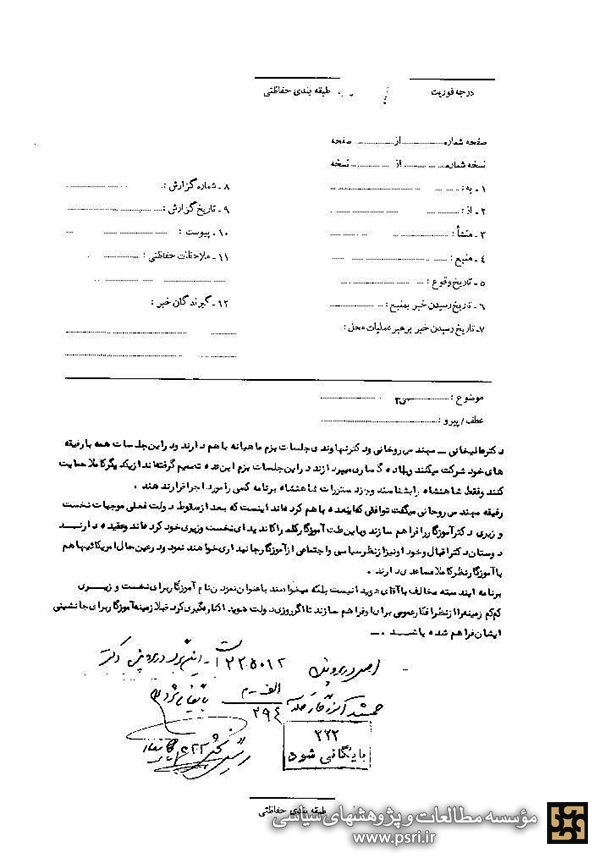 درجه فوریت
طبقه بندی حفاظتی
صفحه شماره ............ از ............ صفحه
نسخه شماره ............ از ............ نسخه
۱ - به :
۲ - از :
۳ - منشأ :
۴ - منبع :
۵ - تاریخ وقوع :
۶ - تاریخ رسیدن خبر بمنبع :
۷ - تاریخ رسیدن خبر برهبر عملیات محلی :
۸ - شماره گزارش :
۹ - تاریخ گزارش :
۱۰ - پیوست :
۱۱ - ملاحظات حفاظتی :
۱۲ - گیرندگان خبر :
موضوع :
عطف / پیرو :
دکتر عالیخانی - مهندس روحانی و دکتر نهاوندی جلسات بزم ماهیانه با هم دارند و در این جلسات همه با رفیقه
های خود شرکت میکنند و بباده گساری میپردازند در این جلسات بزم این عده تصمیم گرفته‌اند از یکدیگر کاملا حمایت
کنند و فقط شاهنشاه را بشناسند و جزد ستورات شاهنشاه برنامه کسی را مورد اجرا قرار ندهند .
رفیقه مهندس روحانی میگفت توافقی که اینعده با هم کرده‌اند اینست که بعد از سقوط دولت فعلی موجبات نخست
وزیری دکتر آموزگار را فراهم سازند و باین علت آموزگار را کاندیدای نخست وزیری خود کرده‌اند و عقیده دارند
دوستان دکتر اقبال و خود او نیز از نظر سیاسی و اجتماعی از آموزگار جانبداری خواهند نمود و در عین حال امریکائیها هم
با آموزگار نظر کاملا مساعدی دارند .
برنامه ایند سته مخالف با آقای هویدا نیست بلکه میخواهند با عنوان نمودن نام آموزگار برای نخست وزیری
کم‌کم زمینه را از نظر افکار عمومی برای او فراهم سازند تا اگر روزی دولت هویدا کناره‌گیری کرد قبلا زمینه آموزگار برای جانشینی
ایشان فراهم شده باشد .
اصل در پرونده ۲۲۵۰۱۲
الف - م
جمشید آموزگار
۲۹۴
۲۲۲
بایگانی شود
طبقه بندی حفاظتی
مؤسسه مطالعات و پژوهشهای سیاسی
www.psri.ir